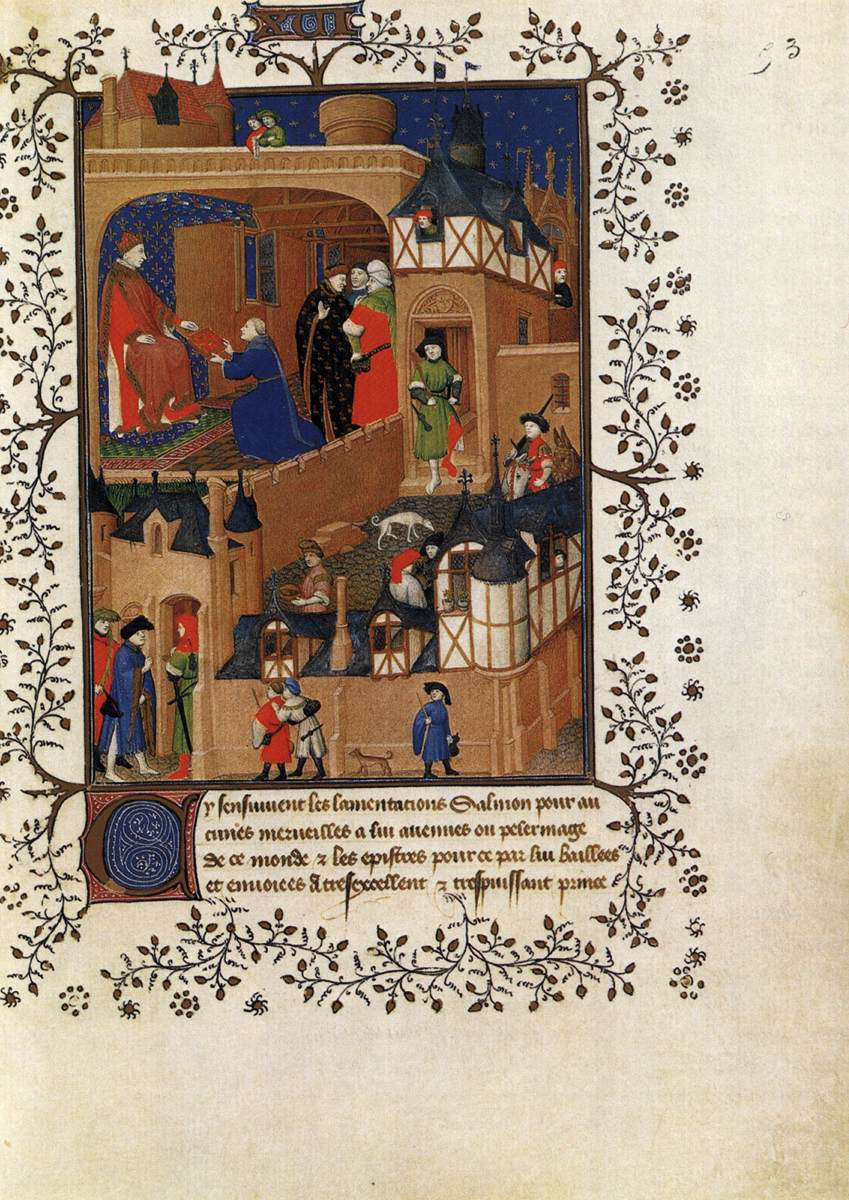 53
Cy sensuiuent les lamentacions Salmon pour au
cunes merueilles a lui auenues ou pelerinage
de ce monde & les epistres pour ce par lui baillees
et enuoiees A tresexcellent & trespuissant prince